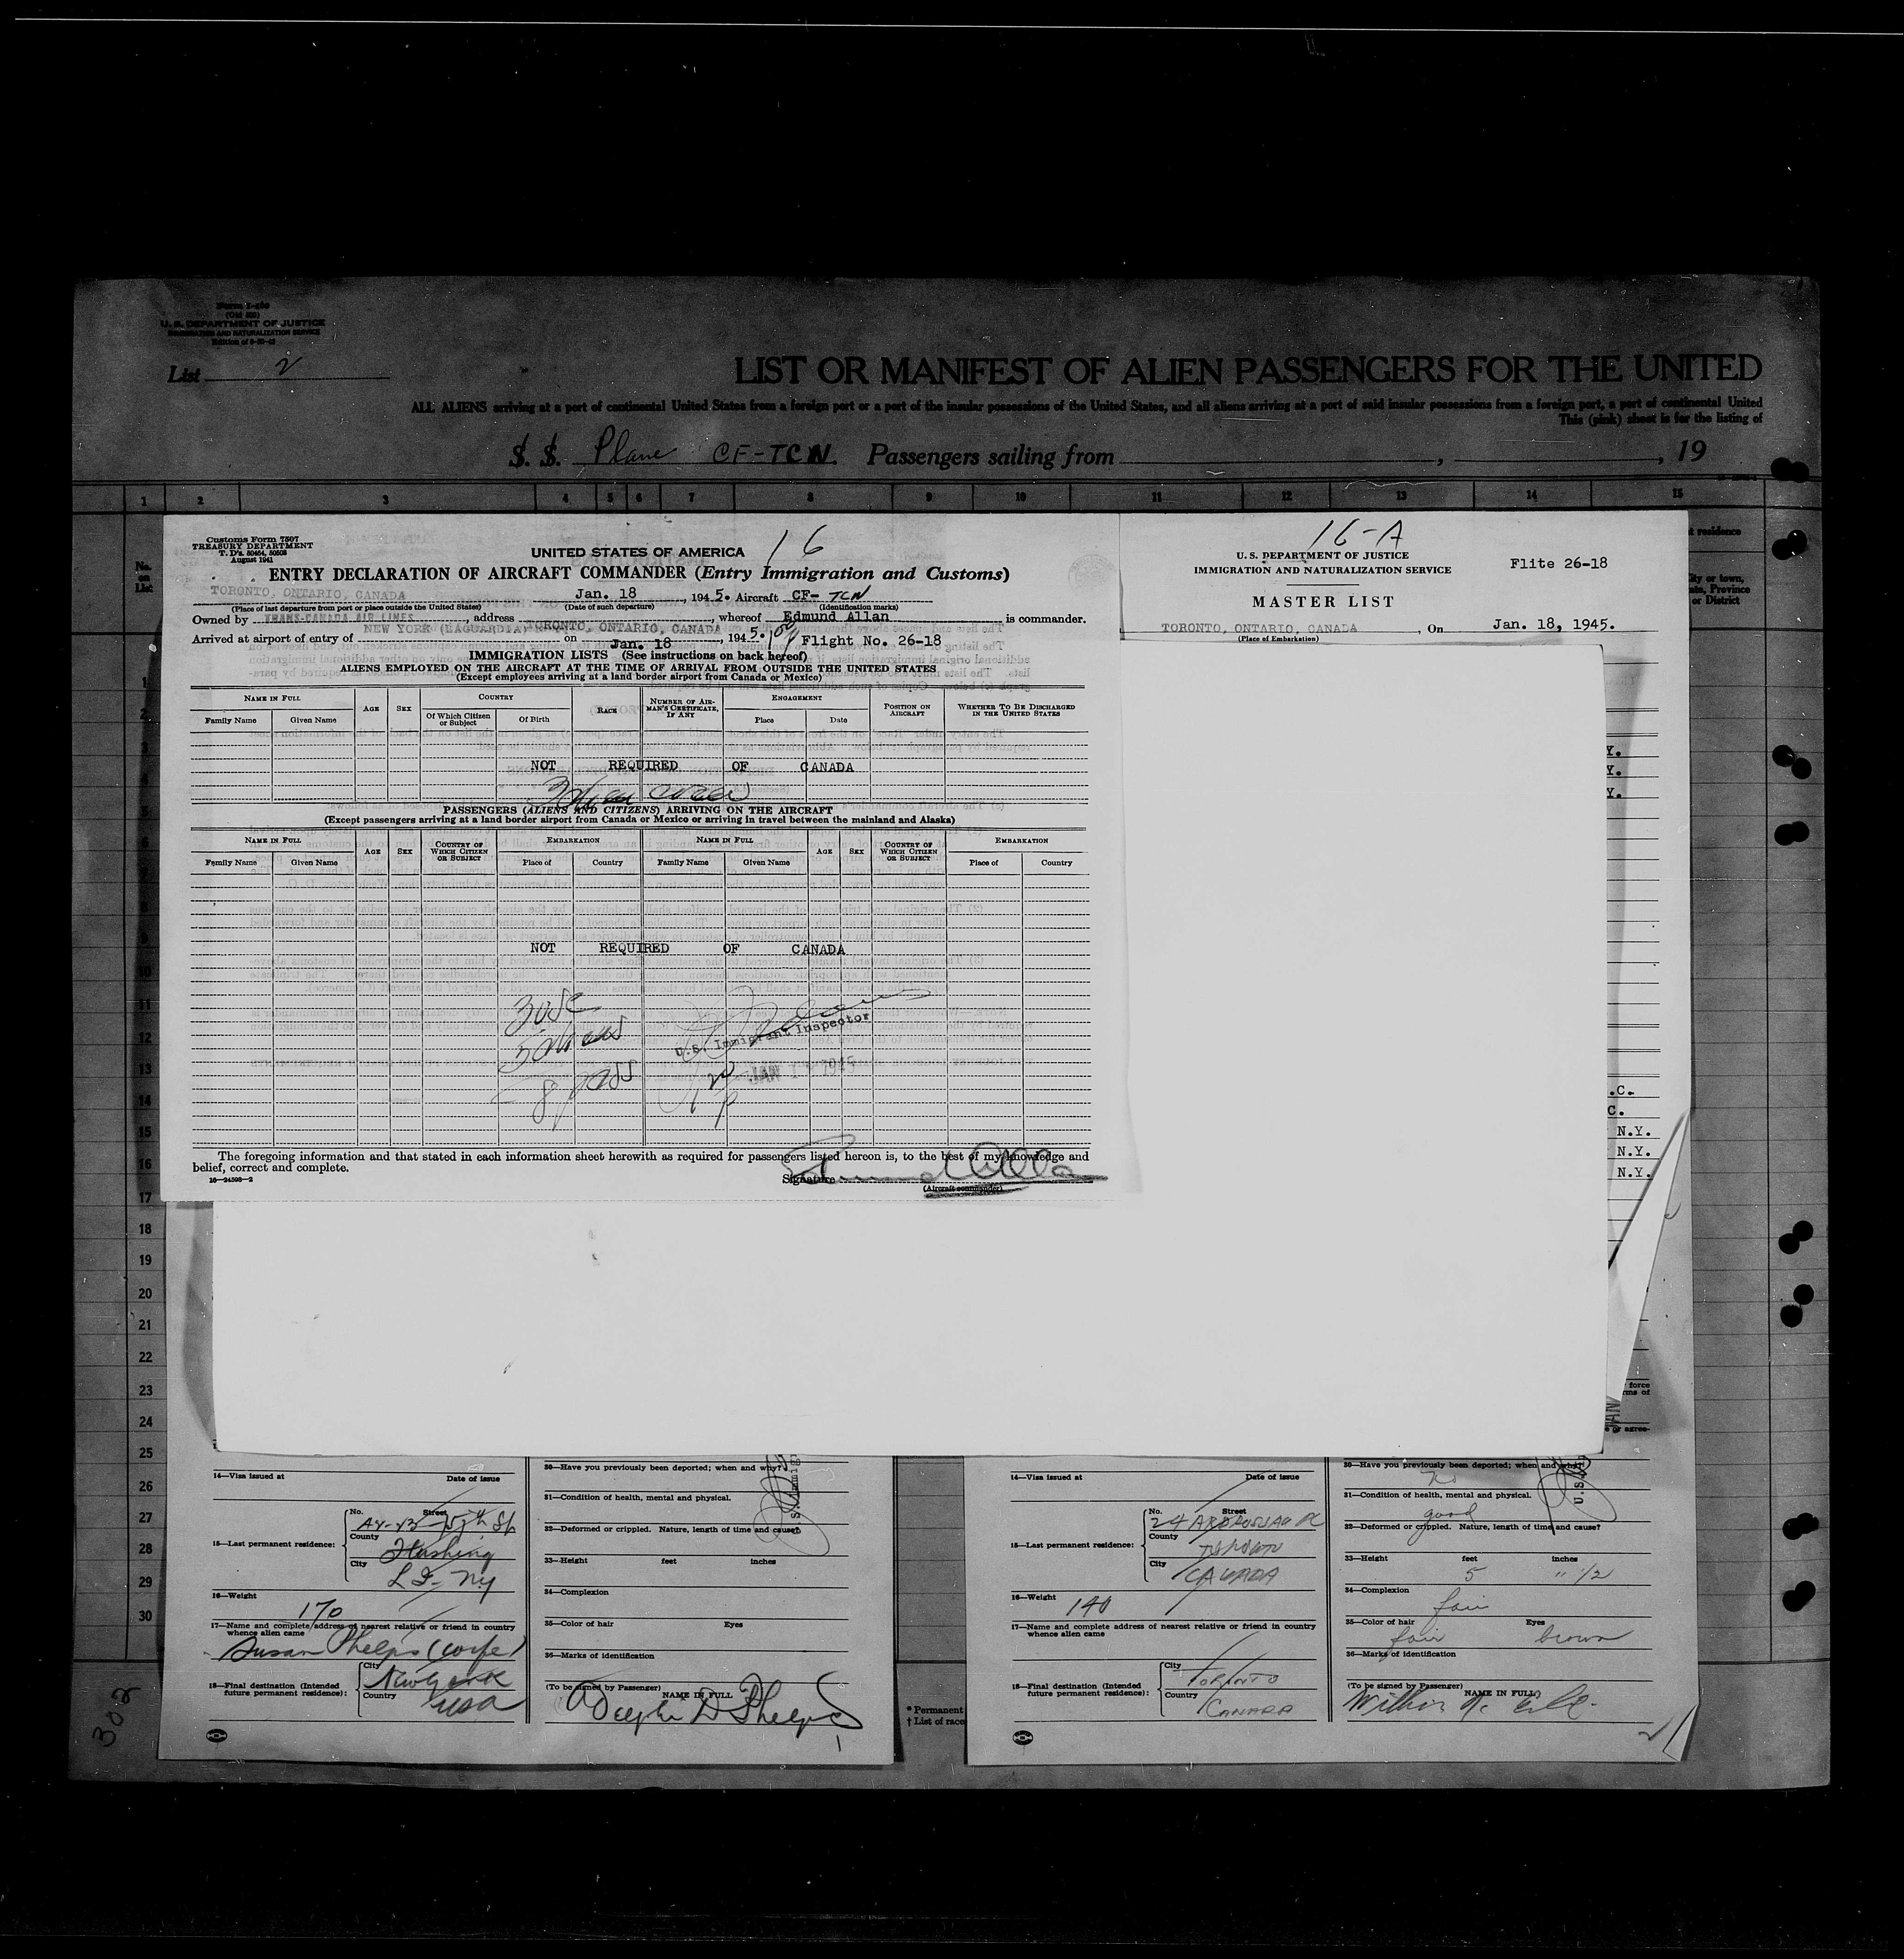 Form I-466
(Old 500)
U. S. DEPARTMENT OF JUSTICE
IMMIGRATION AND NATURALIZATION SERVICE
List 2
LIST OR MANIFEST OF ALIEN PASSENGERS FOR THE UNITED
ALL ALIENS arriving at a port of continental United States from a foreign port or a port of the insular possessions of the United States, and all aliens arriving at a port of said insular possessions from a foreign port, a port of continental United
This (pink) sheet is for the listing of
S. S. Plane CF-TCN. Passengers sailing from , , 19
1 2 3 4 5 6 7 8 9 10 11 12 13 14 15
No. on List
residence
City or town,
State, Province
or District
Customs Form 7507
TREASURY DEPARTMENT
T. D's. 50464, 50503
August 1941
UNITED STATES OF AMERICA 16
ENTRY DECLARATION OF AIRCRAFT COMMANDER (Entry Immigration and Customs)
TORONTO, ONTARIO, CANADA Jan. 18, 1945. Aircraft CF-TCN
(Place of last departure from port or place outside the United States) (Date of such departure) (Identification marks)
Owned by TRANS-CANADA AIR LINES, address TORONTO, ONTARIO, CANADA, whereof Edmund Allan is commander.
Arrived at airport of entry of NEW YORK (LAGUARDIA) on Jan. 18, 1945. Flight No. 26-18
IMMIGRATION LISTS (See instructions on back hereof)
ALIENS EMPLOYED ON THE AIRCRAFT AT THE TIME OF ARRIVAL FROM OUTSIDE THE UNITED STATES
(Except employees arriving at a land border airport from Canada or Mexico)
NAME IN FULL AGE SEX COUNTRY RACE NUMBER OF AIRMAN'S CERTIFICATE, IF ANY ENGAGEMENT POSITION ON AIRCRAFT WHETHER TO BE DISCHARGED IN THE UNITED STATES
Family Name Given Name Of Which Citizen or Subject Of Birth Place Date
NOT REQUIRED OF CANADA
PASSENGERS (ALIENS AND CITIZENS) ARRIVING ON THE AIRCRAFT
(Except passengers arriving at a land border airport from Canada or Mexico or arriving in travel between the mainland and Alaska)
NAME IN FULL AGE SEX COUNTRY OF WHICH CITIZEN OR SUBJECT EMBARKATION NAME IN FULL AGE SEX COUNTRY OF WHICH CITIZEN OR SUBJECT EMBARKATION
Family Name Given Name Place of Country Family Name Given Name Place of Country
NOT REQUIRED OF CANADA
3 USC
5 aliens
8 pass
U.S. Immigrant Inspector
JAN 1 1945
The foregoing information and that stated in each information sheet herewith as required for passengers listed hereon is, to the best of my knowledge and
belief, correct and complete.
16—24598—2
Signature Edmund Allan
(Aircraft commander)
16-A
U. S. DEPARTMENT OF JUSTICE
IMMIGRATION AND NATURALIZATION SERVICE
Flite 26-18
MASTER LIST
TORONTO, ONTARIO, CANADA, On Jan. 18, 1945.
(Place of Embarkation)
Y.
Y.
Y.
.C.
C.
N.Y.
N.Y.
N.Y.
1
2
3
4
5
6
7
8
9
10
11
12
13
14
15
16
17
18
19
20
21
22
23
24
25
26
27
28
29
30
14—Visa issued at Date of issue
No. Street
15—Last permanent residence:
County Flushing
City L I- NY
16—Weight 170
17—Name and complete address of nearest relative or friend in country
whence alien came
Susan Phelps (wife)
18—Final destination (Intended
future permanent residence):
City New York
Country USA
30—Have you previously been deported; when and why?
31—Condition of health, mental and physical.
32—Deformed or crippled. Nature, length of time and cause?
33—Height feet inches
34—Complexion
35—Color of hair Eyes
36—Marks of identification
(To be signed by Passenger) NAME IN FULL
D Phelps
* Permanent
† List of race
14—Visa issued at Date of issue
No. Street
24
15—Last permanent residence:
County
City CANADA
16—Weight 140
17—Name and complete address of nearest relative or friend in country
whence alien came
18—Final destination (Intended
future permanent residence):
City TORONTO
Country CANADA
30—Have you previously been deported; when and why?
no
31—Condition of health, mental and physical.
good
32—Deformed or crippled. Nature, length of time and cause?
33—Height feet inches
5 " 1/2
34—Complexion
fair
35—Color of hair Eyes
fair brown
36—Marks of identification
(To be signed by Passenger) NAME IN FULL
302